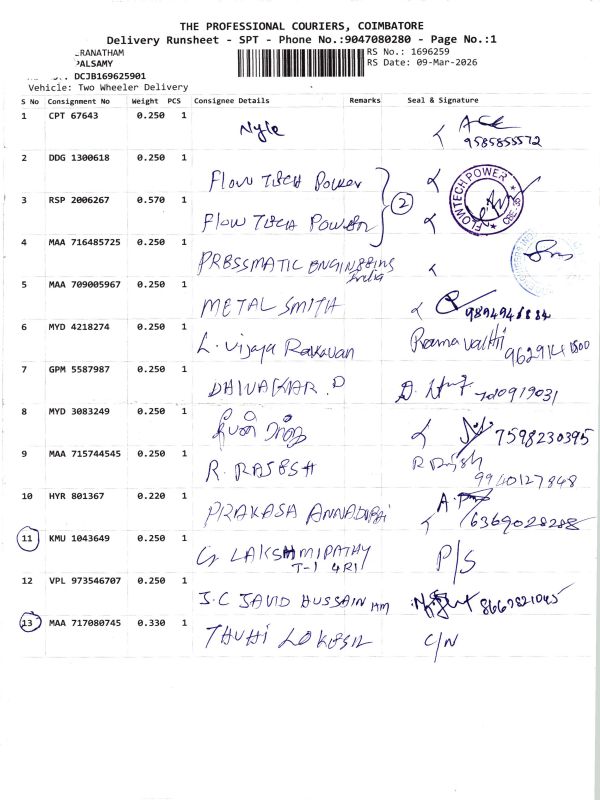 THE PROFESSIONAL COURIERS, COIMBATORE
Delivery Runsheet - SPT - Phone No.:9047080280 - Page No.:1
RANATHAM RS No.: 1696259
PALSAMY RS Date: 09-Mar-2026
DCJB169625901
Vehicle: Two Wheeler Delivery
S No Consignment No Weight PCS Consignee Details Remarks Seal & Signature
1 CPT 67643 0.250 1 Nyle
9585855572
2 DDG 1300618 0.250 1 Flow Tech Power
FLOWTECH POWER CBE
3 RSP 2006267 0.570 1 Flow Tech Power 2
4 MAA 716485725 0.250 1 PRESSMATIC ENGINEERING
India
5 MAA 709005967 0.250 1 METAL SMITH
6 MYD 4218274 0.250 1 L. Vijaya Rakavan
7 GPM 5587987 0.250 1 DHIVAKAR.D 7010919031
8 MYD 3083249 0.250 1 7598230395
9 MAA 715744545 0.250 1 R. RAJESH R Rajesh
9940127848
10 HYR 801367 0.220 1 PRAKASA ANNADURAI
6369028288
11 KMU 1043649 0.250 1 G LAKSHMIPATHY P/S
T-1 4R1
12 VPL 973546707 0.250 1 J.C JAVID HUSSAIN HM 8667821045
13 MAA 717080745 0.330 1 THUHI LOKESH C/N